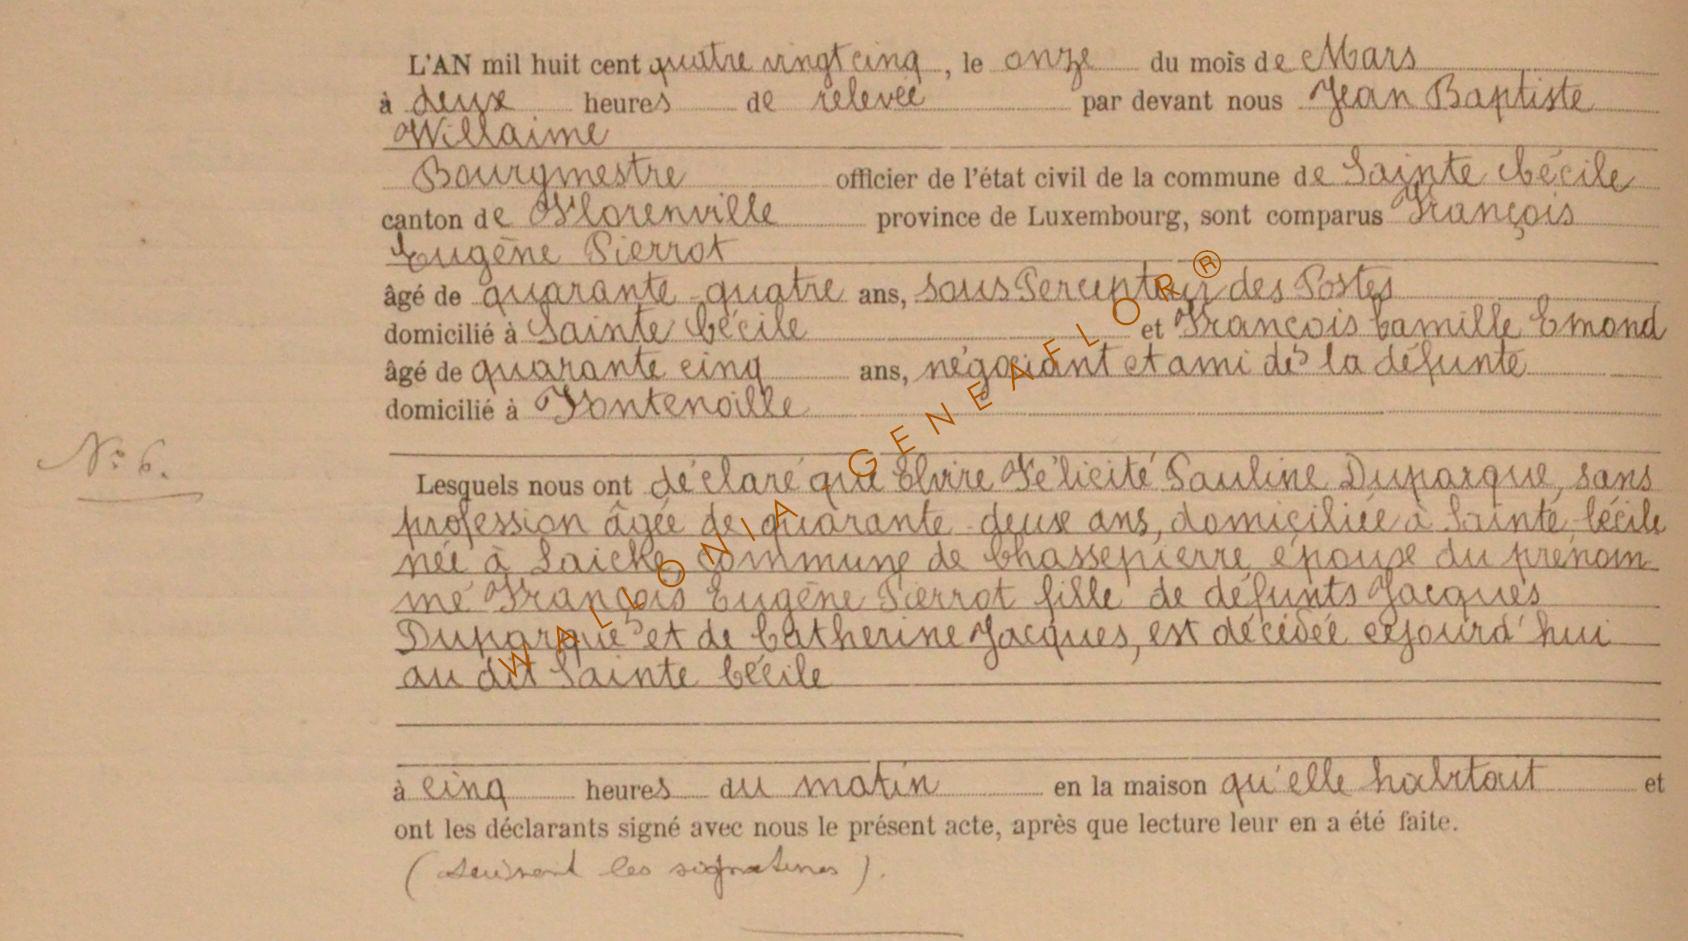 L'AN mil huit cent quatre vingt cinq, le onze du mois de Mars
à deux heures de relevée par devant nous Jean Baptiste
Willaime
Bourgmestre officier de l'état civil de la commune de Sainte Cécile
canton de Florenville province de Luxembourg, sont comparus François
Eugène Pierrot
âgé de quarante-quatre ans, sous Percepteur des Postes
domicilié à Sainte Cécile et François Camille Emond
âgé de quarante cinq ans, négociant et ami de la défunte
domicilié à Fontenoille
N° 6.
Lesquels nous ont déclaré que Elvire Félicité Pauline Duparque, sans
profession âgée de quarante-deux ans, domiciliée à Sainte-Cécile
née à Laiche, commune de Chassepierre, épouse du prénom-
mé François Eugène Pierrot fille de défunts Jacques
Duparque et de Catherine Jacques, est décédée cejourd'hui
au dit Sainte Cécile
à cinq heures du matin en la maison qu'elle habitait et
ont les déclarants signé avec nous le présent acte, après que lecture leur en a été faite.
(suivent les signatures).
WALLONIA GENEAFLOR ®